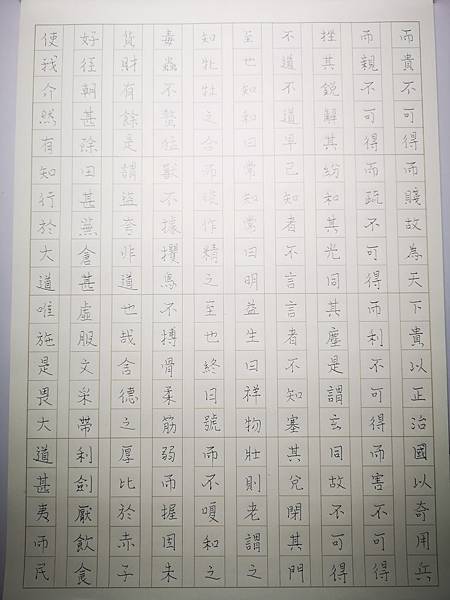 使我介然有知行於大道唯施是畏大道甚夷而民
好徑朝甚除田甚蕪倉甚虛服文采帶利劍厭飲食
貨財有餘是謂盜夸非道也哉含德之厚比於赤子
毒蟲不螫猛獸不據攫鳥不搏骨柔筋弱而握固未
知牝牡之合而作精之至也終日號而不嗄和之
至也知和曰常知常曰明益生曰祥物壯則老謂之
不道不道早已知者不言言者不知塞其兌閉其門
挫其銳解其紛和其光同其塵是謂玄同故不可得
而親不可得而疏不可得而利不可得而害不可得
而貴不可得而賤故為天下貴以正治國以奇用兵